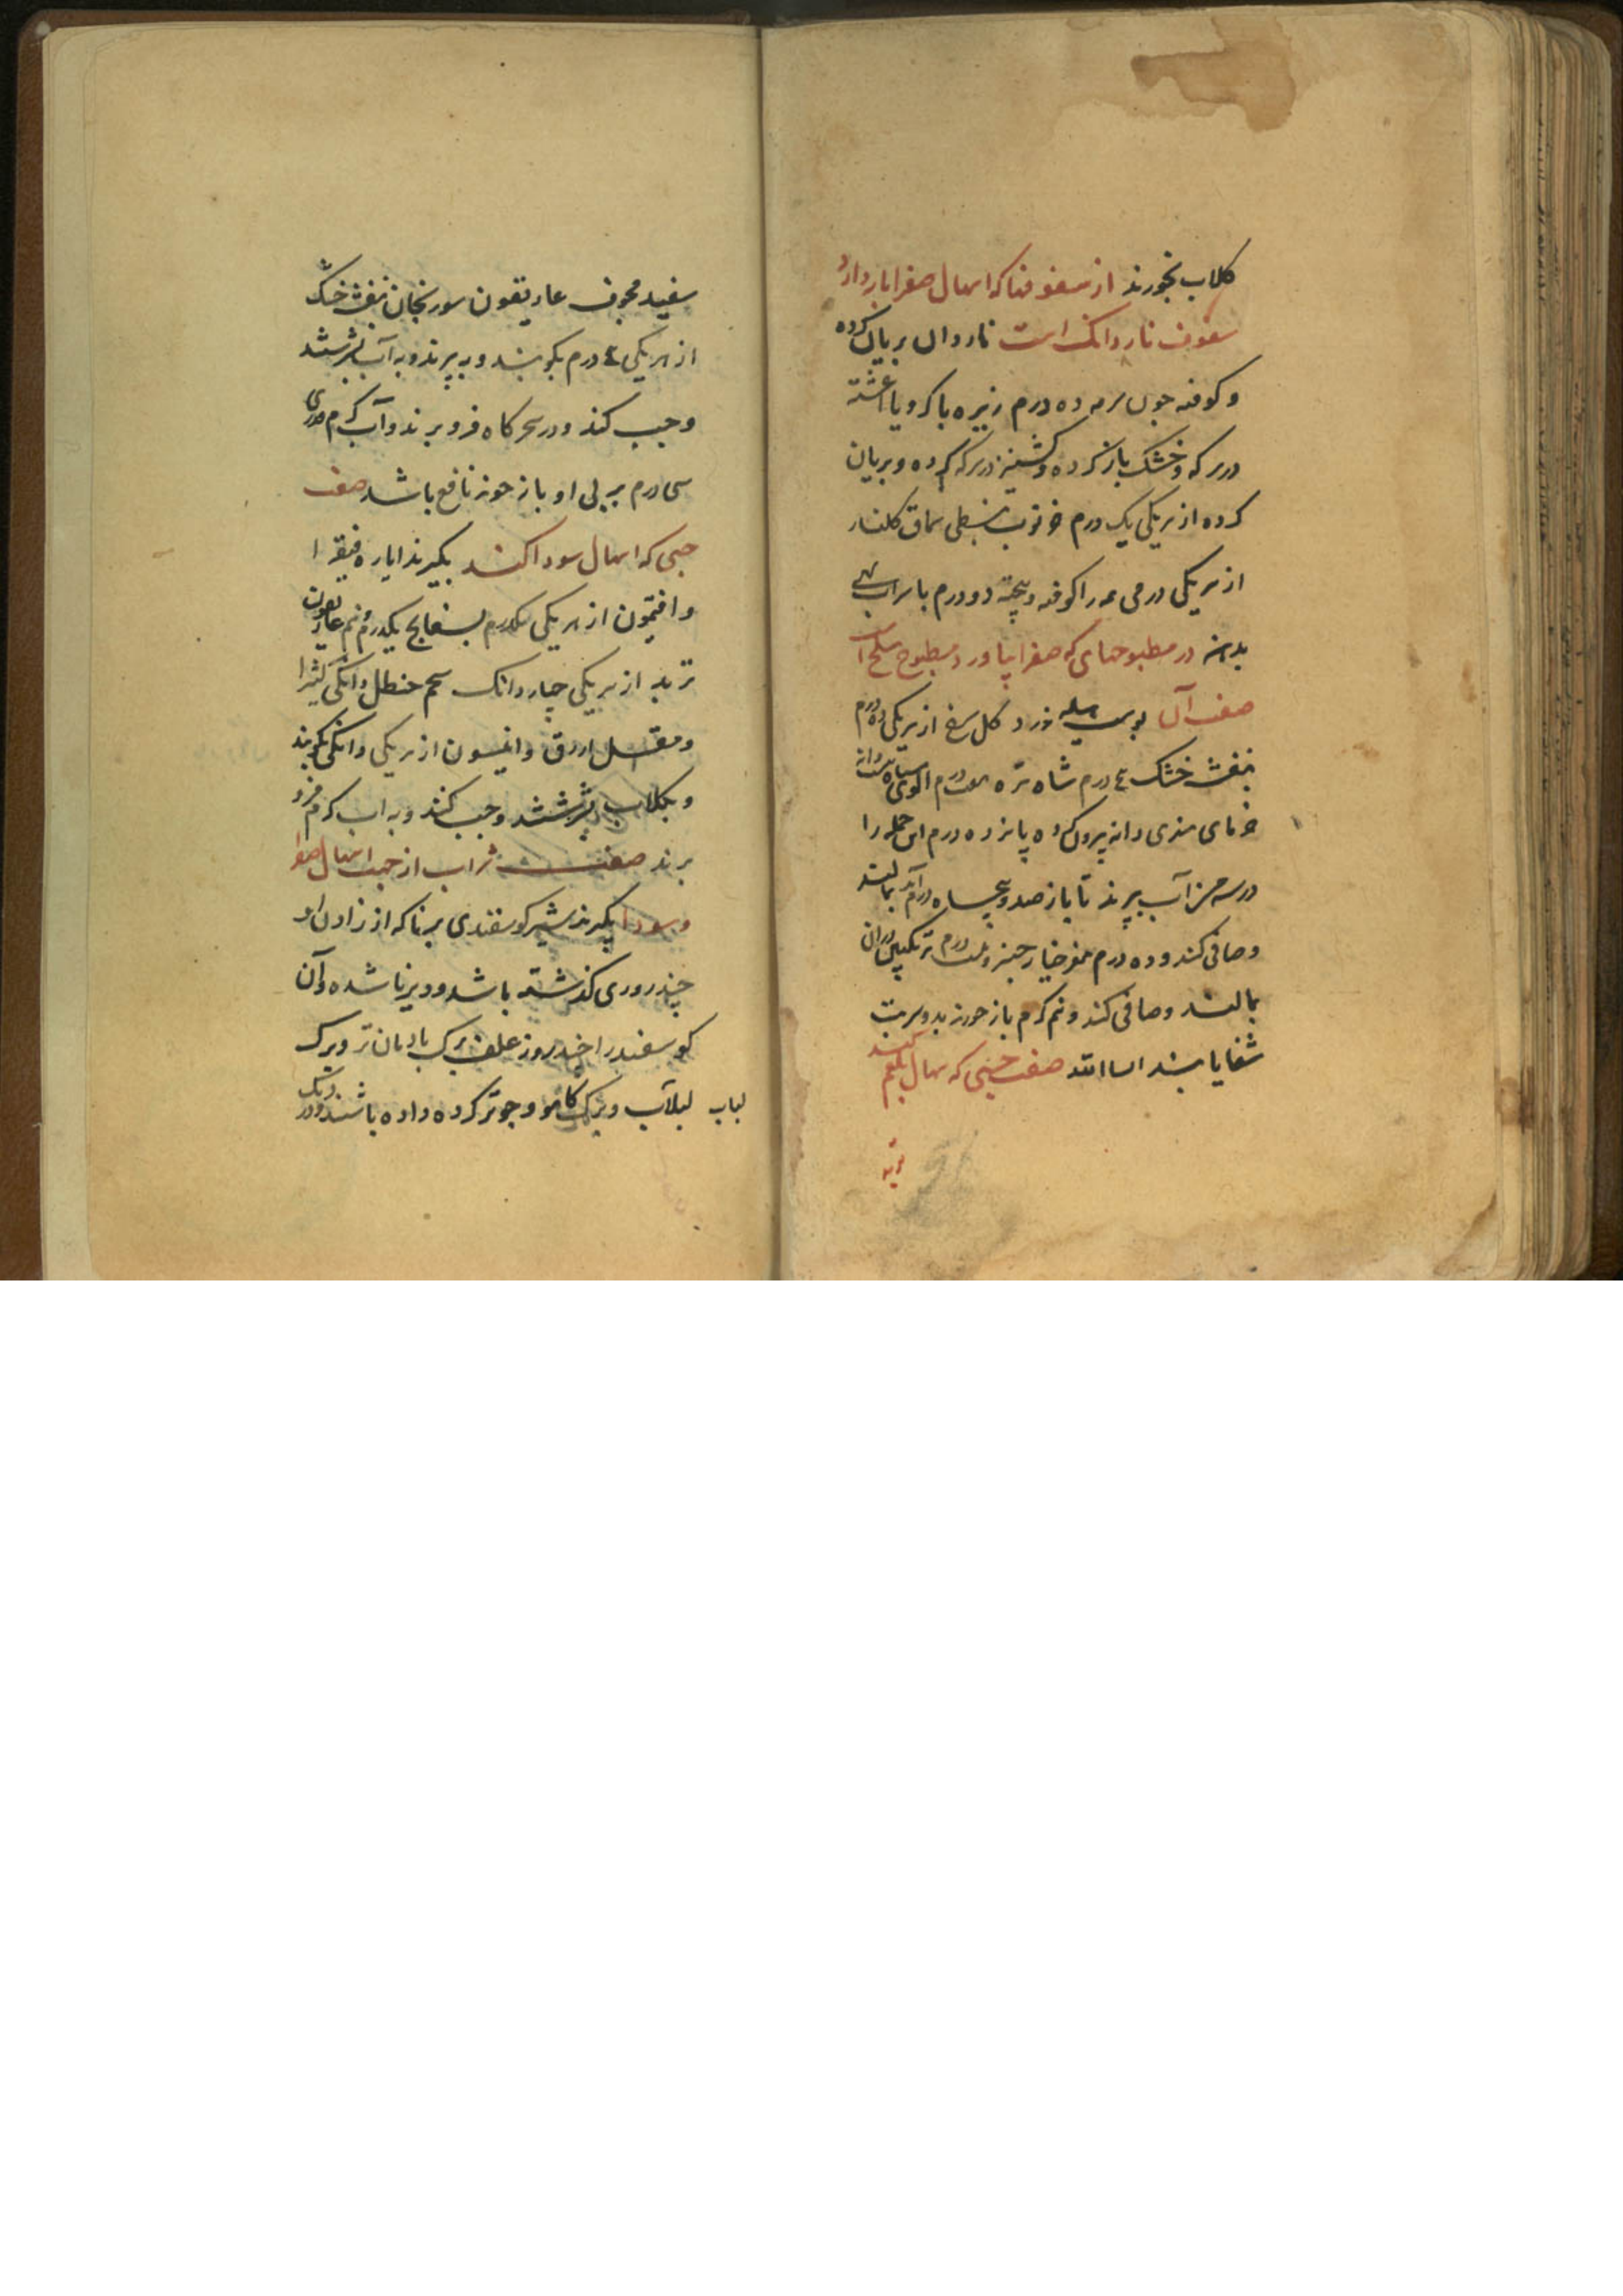 کلاب بخورند از سفوفها که اسهال صفرا باز دارد
سفوف ناردانک است ناردان بریان کرده
و کوفته جون سرمه ده درم زیره با کرویا اغشته
در سرکه و خشک باز کرده و کشنیز در سرکه کرده و بریان
کرده از هر یکی یک درم خرنوب نبطی سماق کلنار
از هر یکی درمی همه را کوفته و پخته دو درم با شراب بهی
بدهند در مطبوخهای که صفرا بیاورد مطبوخ است
صفت آن پوست هلیله زرد کل سرخ از هر یکی ده درم
بنفشه خشک ٤ درم شاه تره هفت درم الوی سیاه بیست دانه
خرمای هندی دانه بیرون کرده پانزده درم این جمله را
در سه من آب بپزند تا باز صد و پنجاه درم آید بمالند
و صافی کنند و ده درم مغز خیار چنبر و بیست درم ترنکبین دران
بمالند و صافی کنند و نیم کرم باز خورند بدو شربت
شفا یابند ان شا الله صفت حبی که اسهال بلغم کند
تربد
سفید مجوف غاریقون سورنجان بنفشه خشک
از هر یکی ٤ درم بکوبند و به پزند و به آب بسرشند
و حب کنند و در سحرکاه فرو برند و آب کرم قدری
سی درم بر پی او باز خورند نافع باشد صفت
حبی که اسهال سودا کند بکیرند ایاره فیقرا
و افتیمون از هر یکی یکدرم بسفایج یکدرم و نیم غاریقون
تربد از هر یکی چهار دانک شحم حنظل دانکی کثیرا
و مقل ازرق و انیسون از هر یکی دانکی بکوبند
و بکلاب بسرشند و حب کنند و به اب کرم فرو
برند صفت شراب از جهت اسهال صفرا
و سودا بکیرند شیر کوسفندی برنا که از زادن او
چند روزی کذشته باشد و دیر نا شده و آن
کوسفند را چند روز علف برک بادیان تر و برک
لبلاب و برک کاهو و جو تر کرده داده باشند و در دیک
لباب